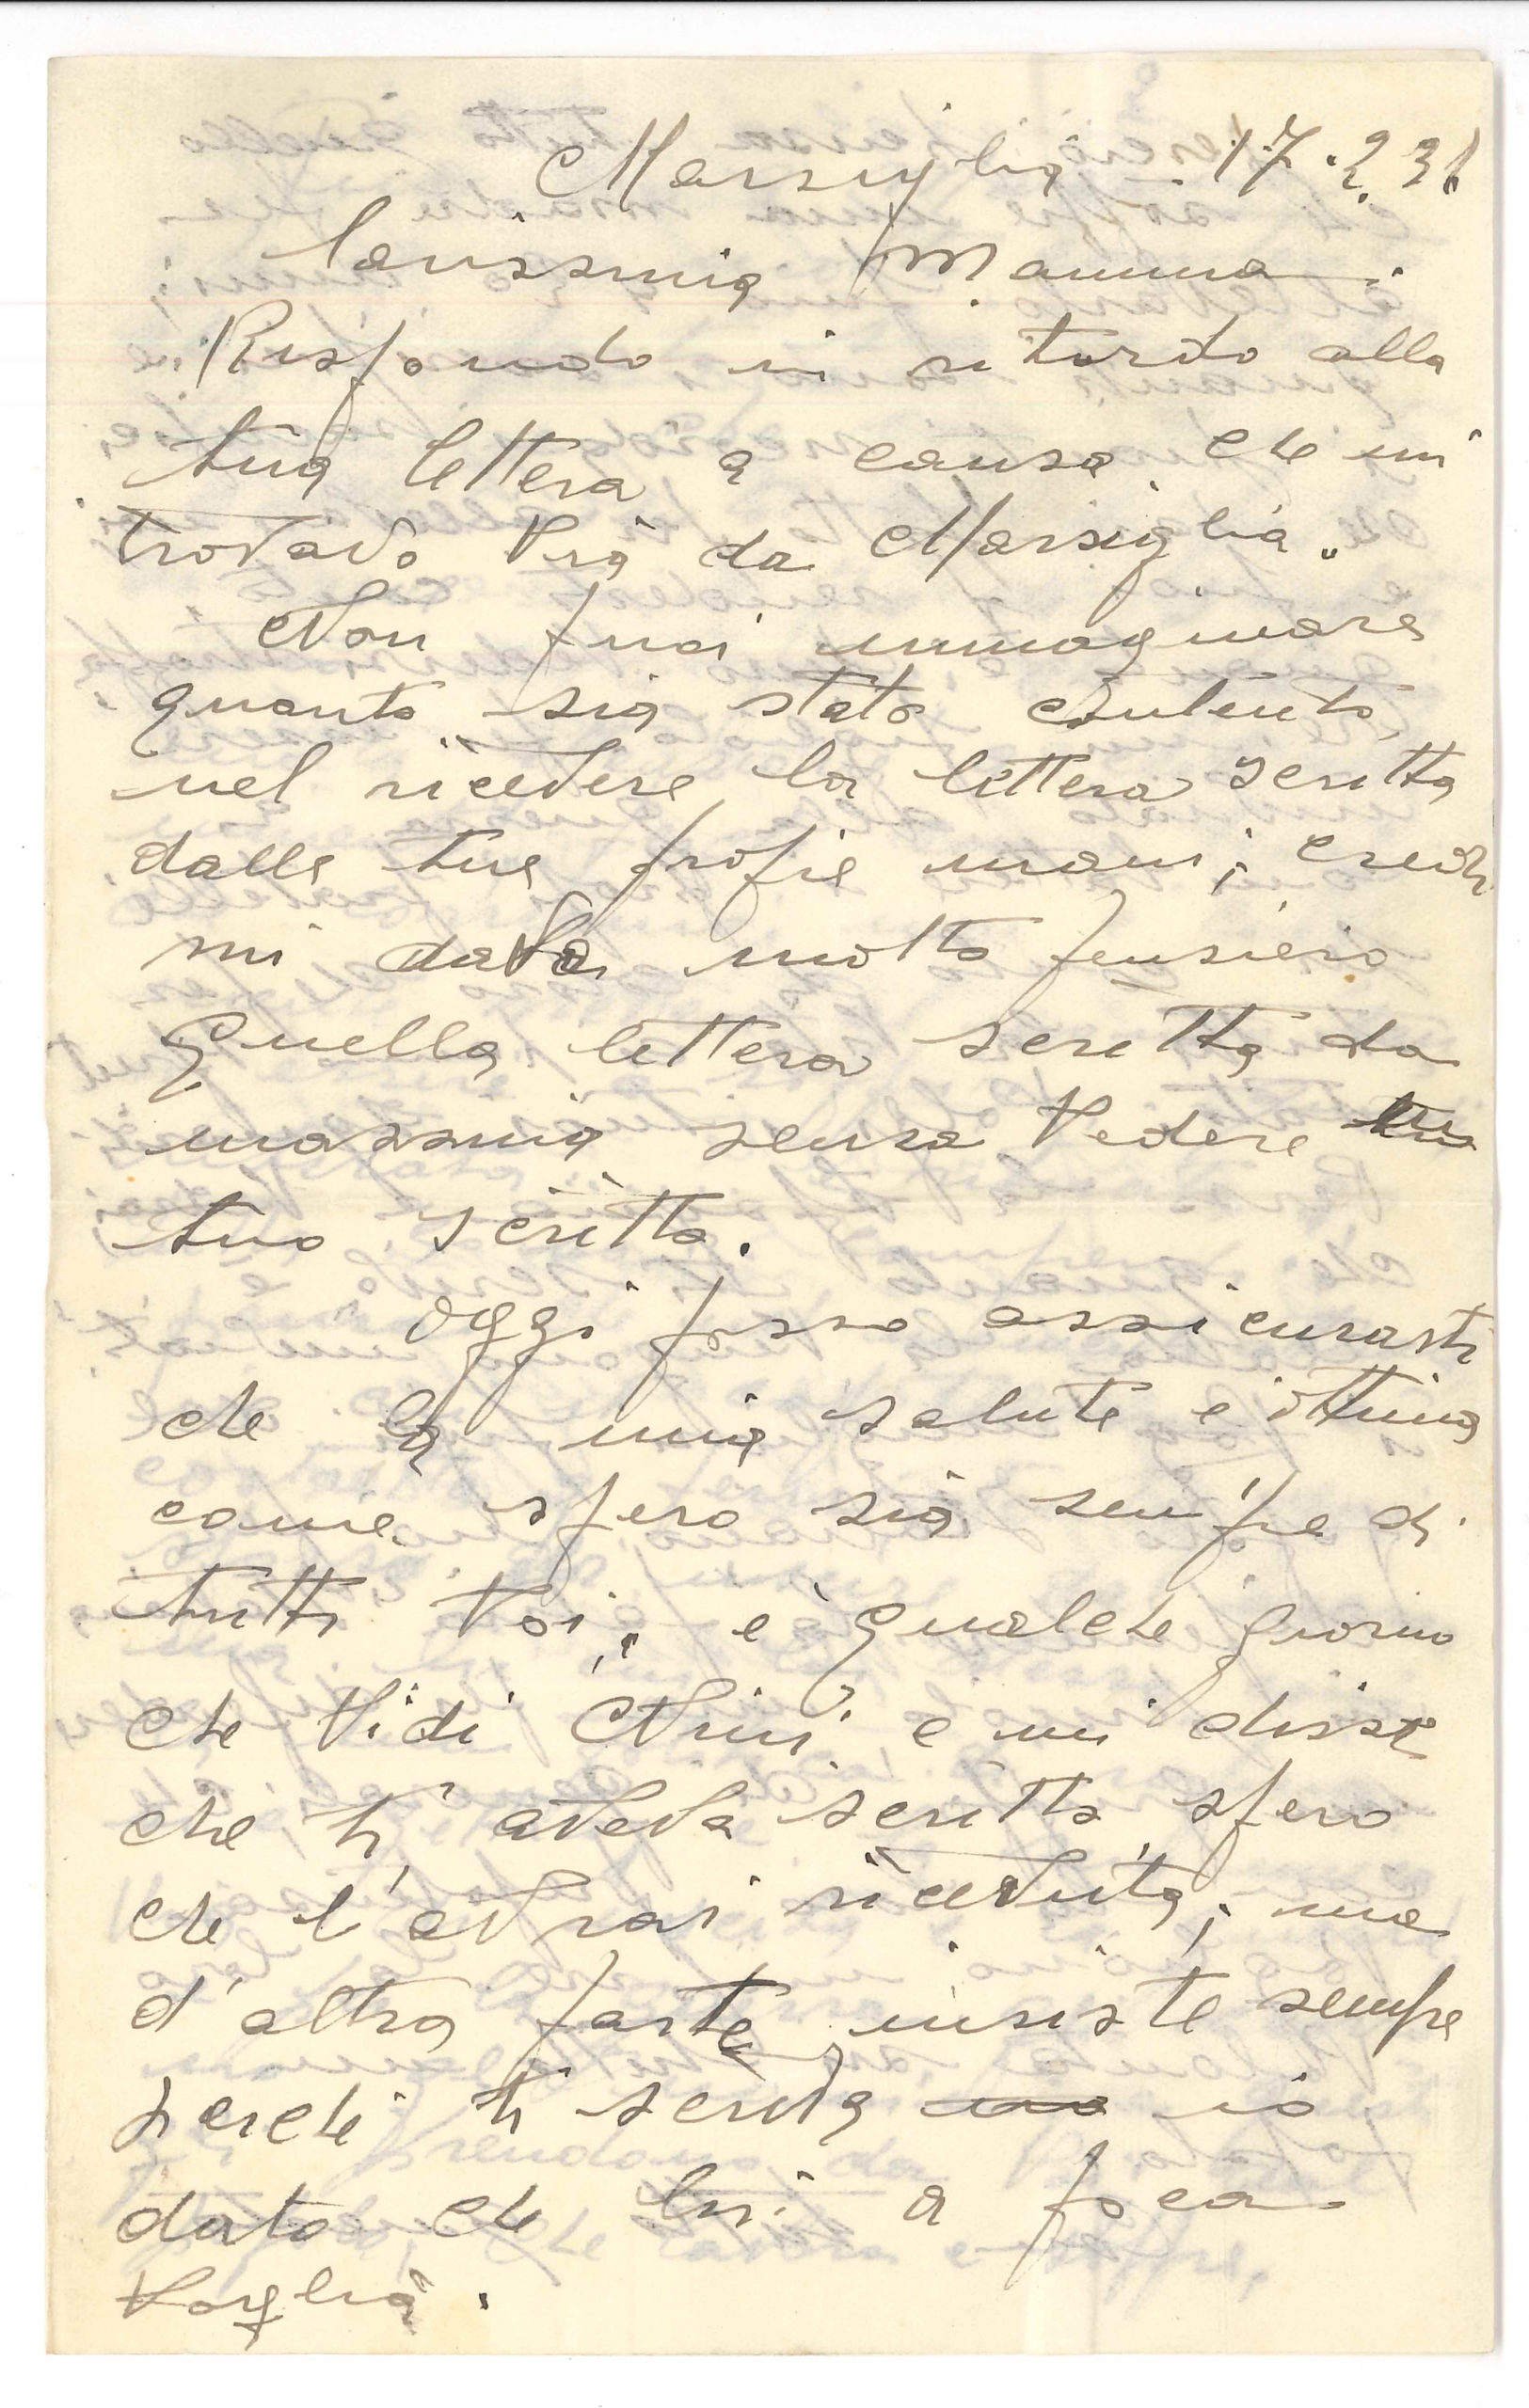 Marsiglia 17.2.31
Carissima Mamma.
Rispondo in ritardo alla
tua lettera a causa che mi
trovavo via da Marsiglia.
Non puoi immaginare
quanto sia stato contento
nel ricevere la lettera scritta
dalle tue propie mani; credi
mi dava molto pensiero
quella lettera scritta da
massimia senza vedere
tuo scritto.
Oggi posso assicurarti
che la mia salute e ottima
come spero sia sempre di
tutti voi, e qualche giorno
che vidi Nini e mi disse
che ti aveva scritto, spero
che l'avrai ricevuta; ma
d'altra parte insiste sempre
perche ti scriva io
dato che lui a poca
voglia.